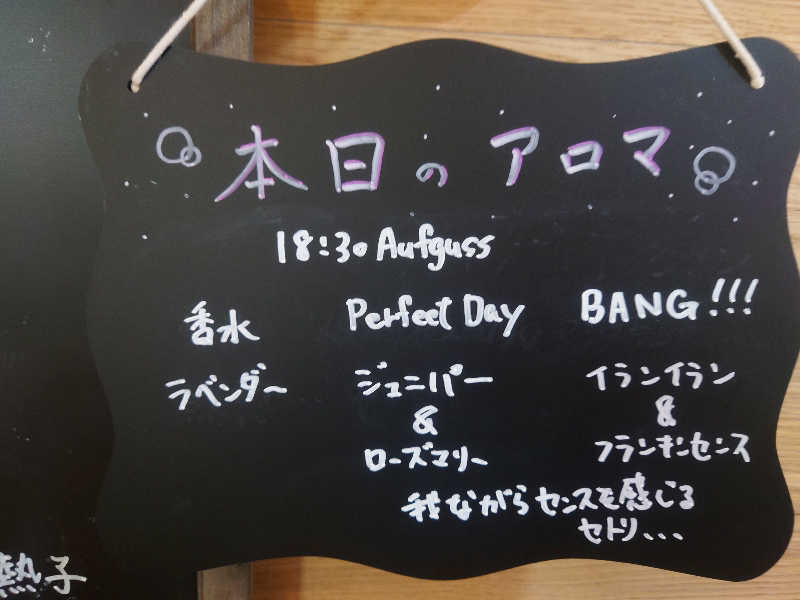 本日のアロマ
18:30 Aufguss
香水 Perfect Day BANG!!!
ラベンダー ジュニパー イランイラン
& &
ローズマリー フランキンセンス
我ながらセンスを感じる
セトリ...
熱子